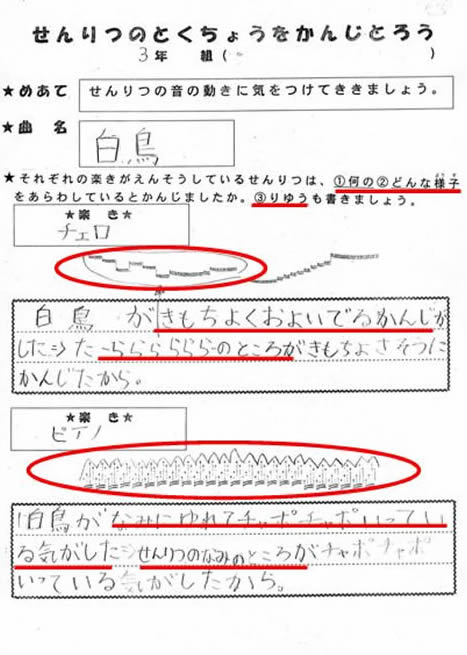 せんりつのとくちょうをかんじとろう
3年　組(　)
★めあて　せんりつの音の動きに気をつけてききましょう。
★曲 名　白鳥
★それぞれの楽きがえんそうしているせんりつは、①何の②どんな様子
をあらわしているとかんじましたか。③りゆうも書きましょう。
★楽 き★
チェロ
白鳥がきもちよくおよいでるかんじが
した⇒たーららららららーのところがきもちよさそうに
かんじたから。
★楽 き★
ピアノ
白鳥がなみにゆれてチャポチャポいってい
る気がした⇒せんりつのなみのところがチャポチャポ
いっている気がしたから。